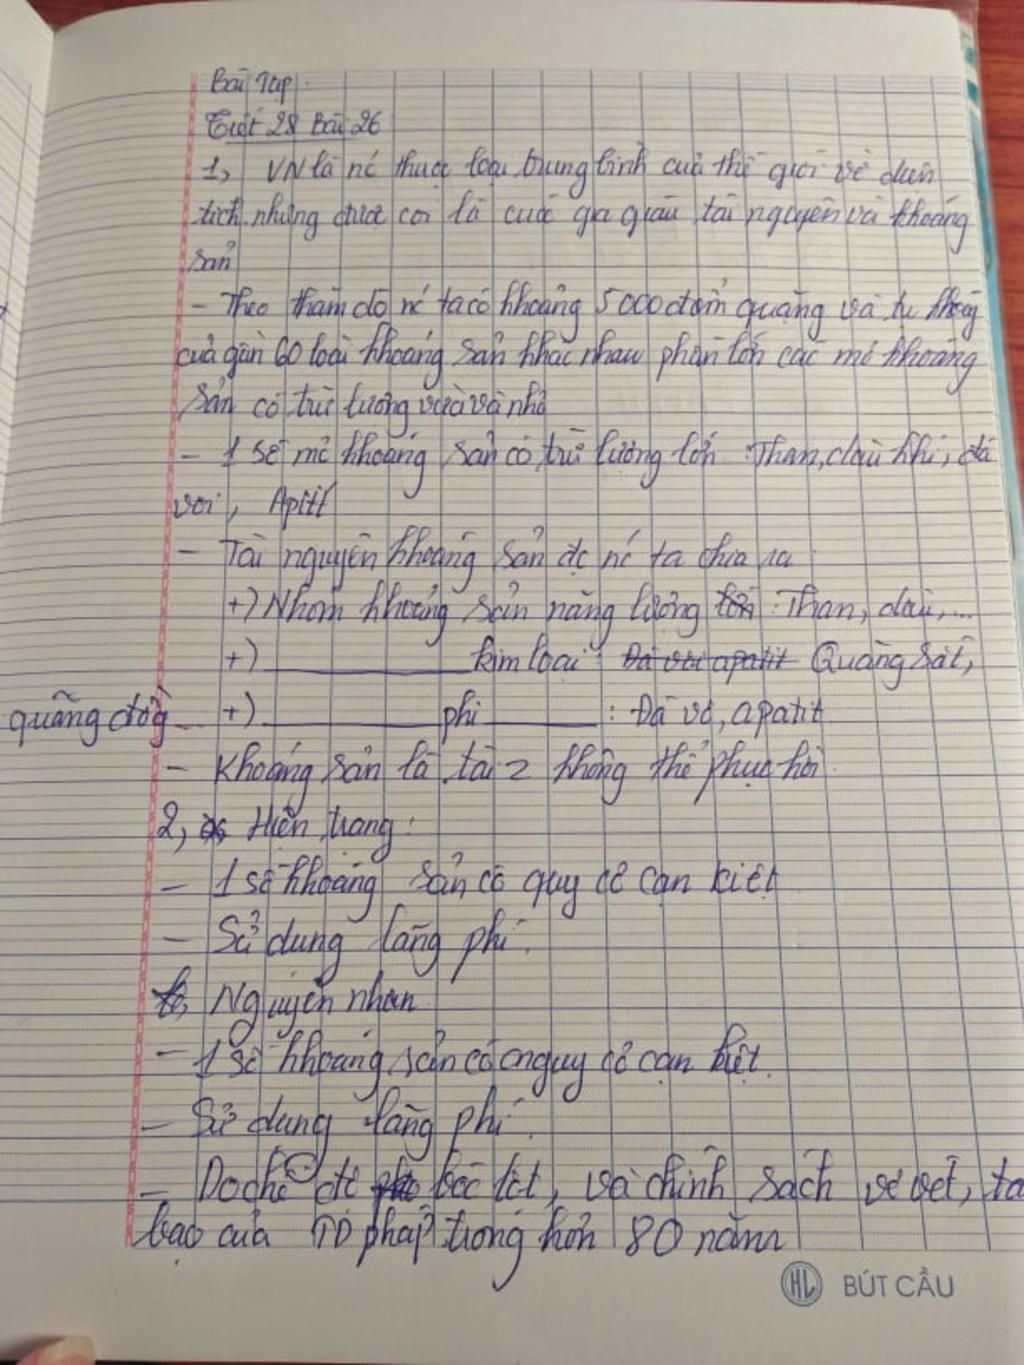 Bài Tập.
Tiết 28 Bài 26
1, VN là nc thuộc loại trung bình của thế giới về diện
tích nhưng được coi là cuốc gia giàu tài nguyên và khoáng
sản
- Theo thăm dò nc ta có khoảng 5000 điểm quặng và tụ khoáng
của gần 60 loại khoáng sản khác nhau phần lớn các mỏ khoáng
sản có trữ lượng vừa và nhỏ
- 1 số mỏ khoáng sản có trữ lượng lớn: Than, dầu khí, đá
vôi, Apitit
- Tài nguyên khoáng sản đc nc ta chia ra
+) Nhóm khoáng sản năng lượng: Than, dầu,...
+) kim loại: Quặng sắt,
quặng đồng
+) phi : Đá vô, apatit
- Khoáng sản là tài 2 không thể phục hồi.
2, Hiện trạng:
- 1 số khoáng sản có quy cơ cạn kiệt
- Sử dụng lãng phí.
Nguyên nhân
- 1 số khoáng sản có nguy cơ cạn kiệt.
- Sử dụng lãng phí.
- Do chế độ bóc lột, và chính sách vơ vét, ta
bạo của TD pháp trong hơn 80 năm
HL BÚT CẦU